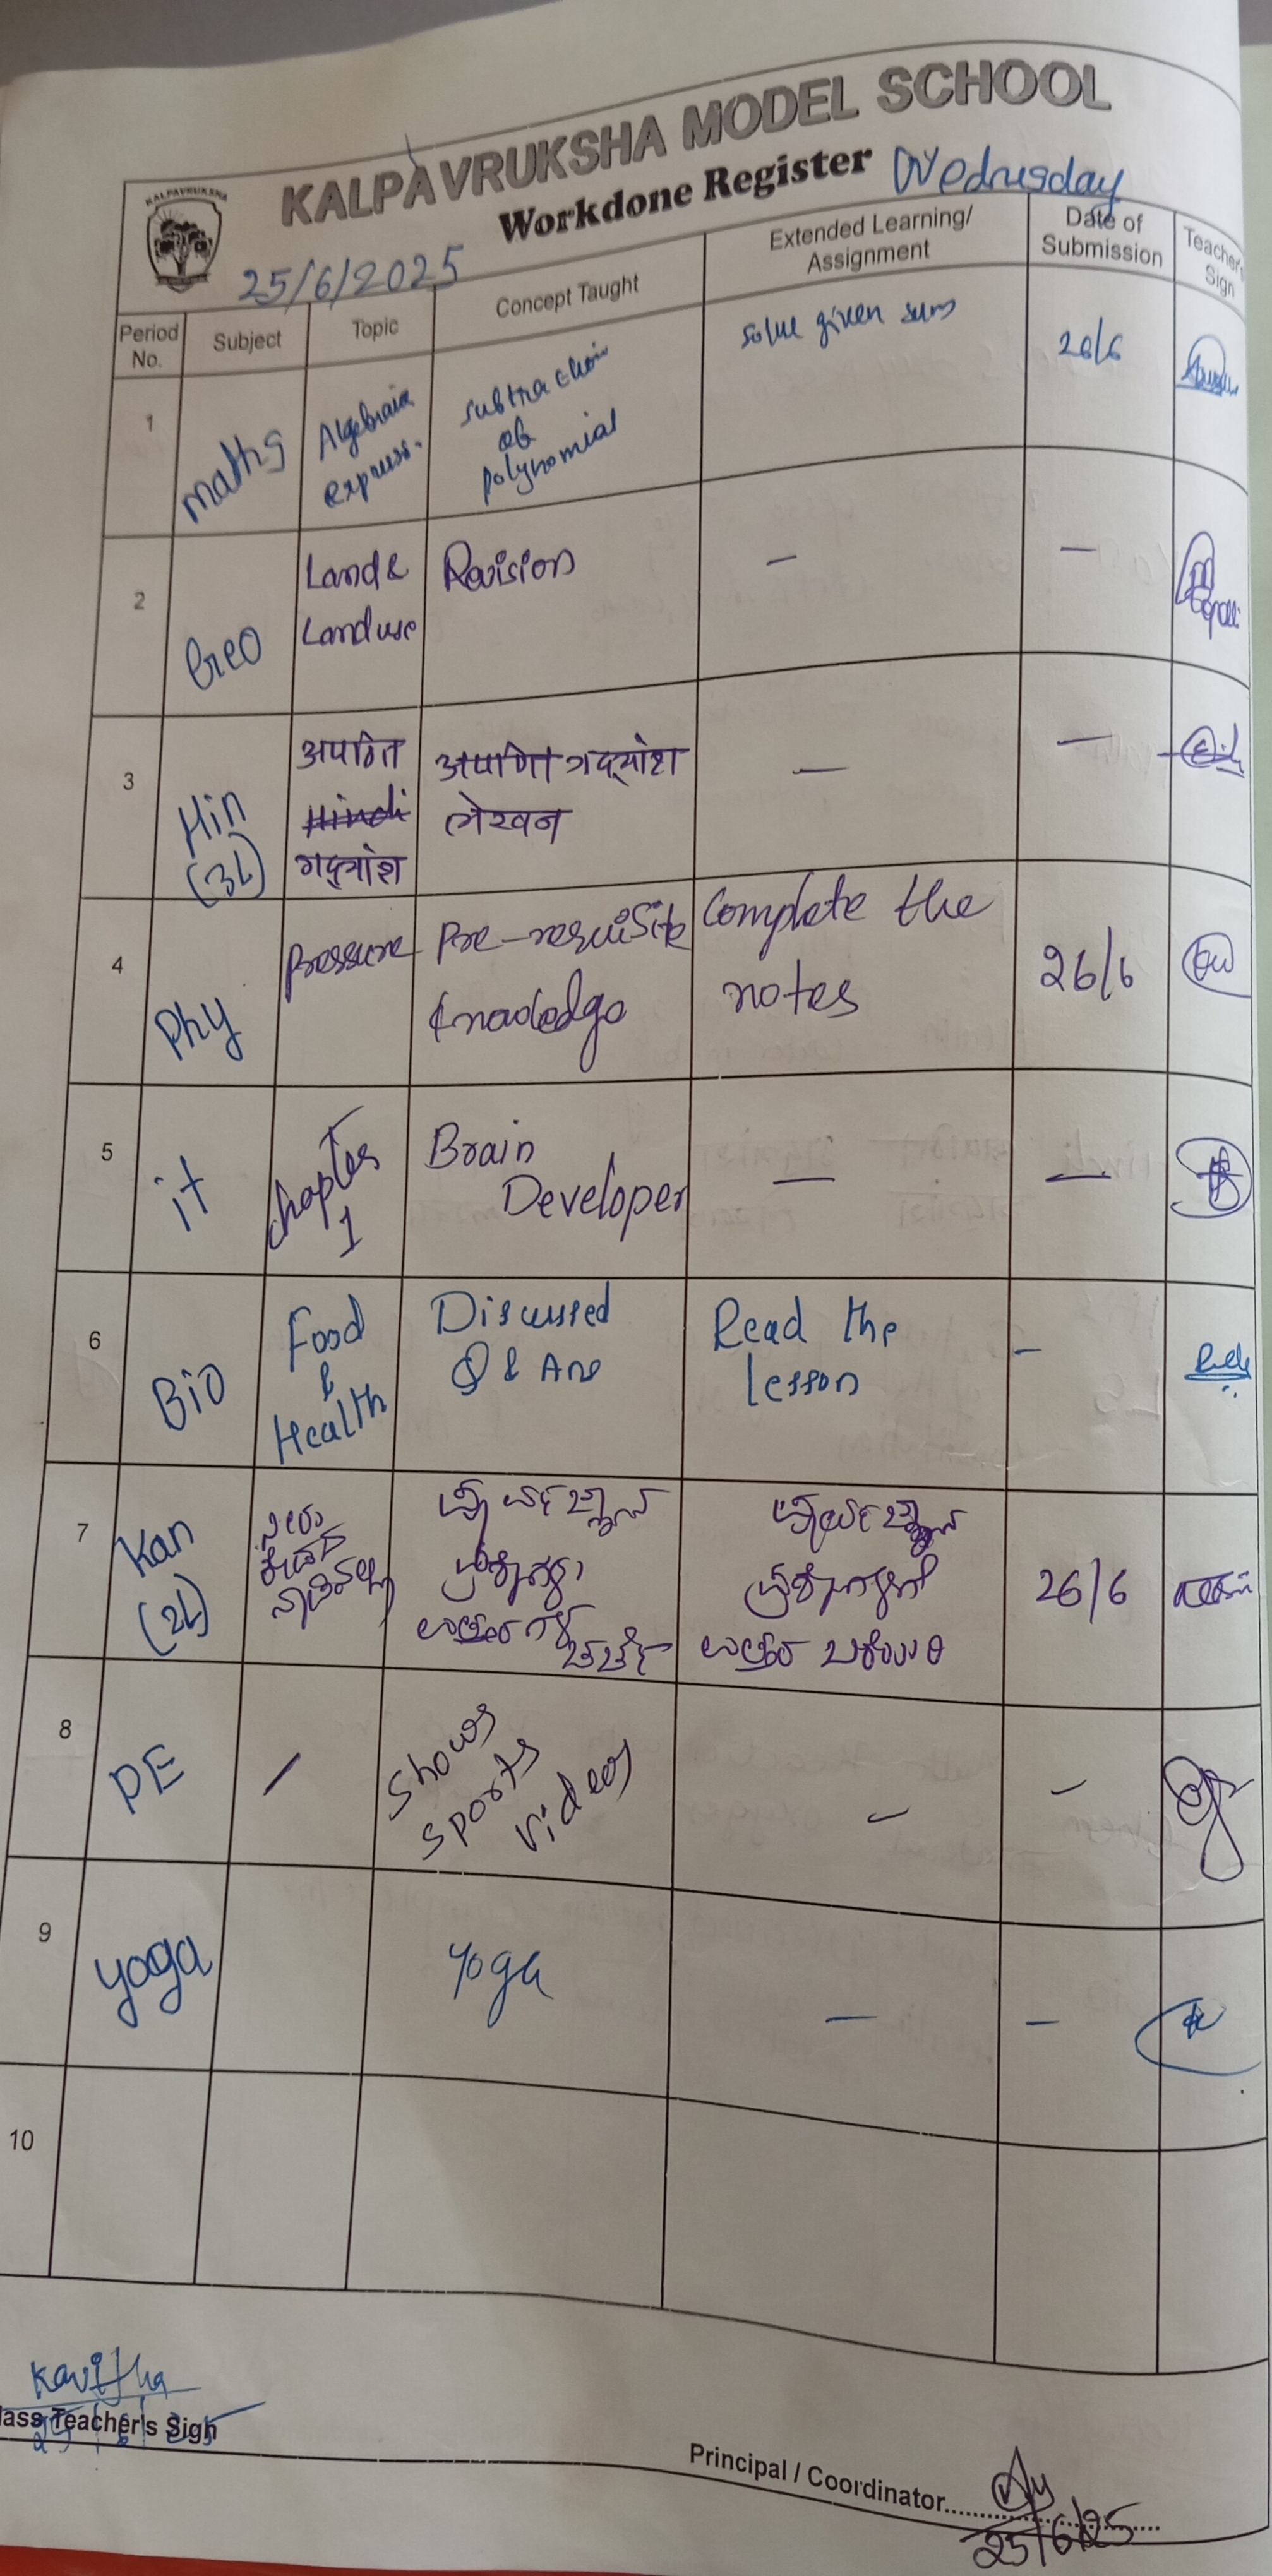 KALPAVRUKSHA
KALPAVRUKSHA MODEL SCHOOL
Workdone Register Wednesday
25/6/2025
Period No. Subject Topic Concept Taught Extended Learning/ Assignment Date of Submission Teacher's Sign
1 maths Algebraic express. subtraction of polynomial solve given sums 26/6
2 Geo Land & Land use Revision — —
3 Hin (3L) अपठित गद्यांश अपठित गद्यांश लेखन — —
4 Phy Pressure Pre-requisite knowledge Complete the notes 26/6
5 it chapter 1 Brain Developer — —
6 Bio Food & Health Discussed Q & Ans Read the lesson -
7 Kan (2L) ಉತ್ತರಗಳ ಚರ್ಚೆ ಉತ್ತರ ಬರೆಯಿರಿ 26/6
8 PE - Shows sports videos - -
9 yoga yoga — —
10
Kavitha
lass Teacher's Sign
25/6/25
Principal / Coordinator
25/6/25